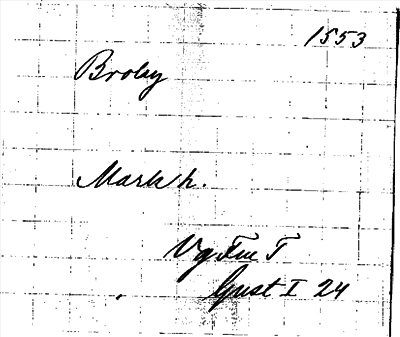 1553
Broby
Markh.
Vg Fm T
Gust I 24